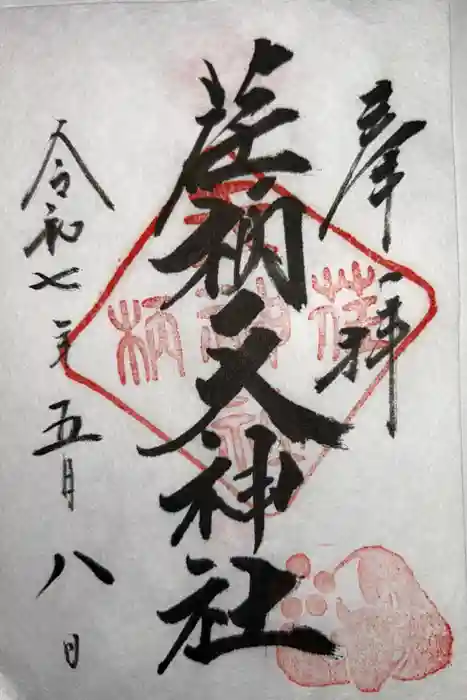 奉拝
荏柄天神社
令和七年五月八日